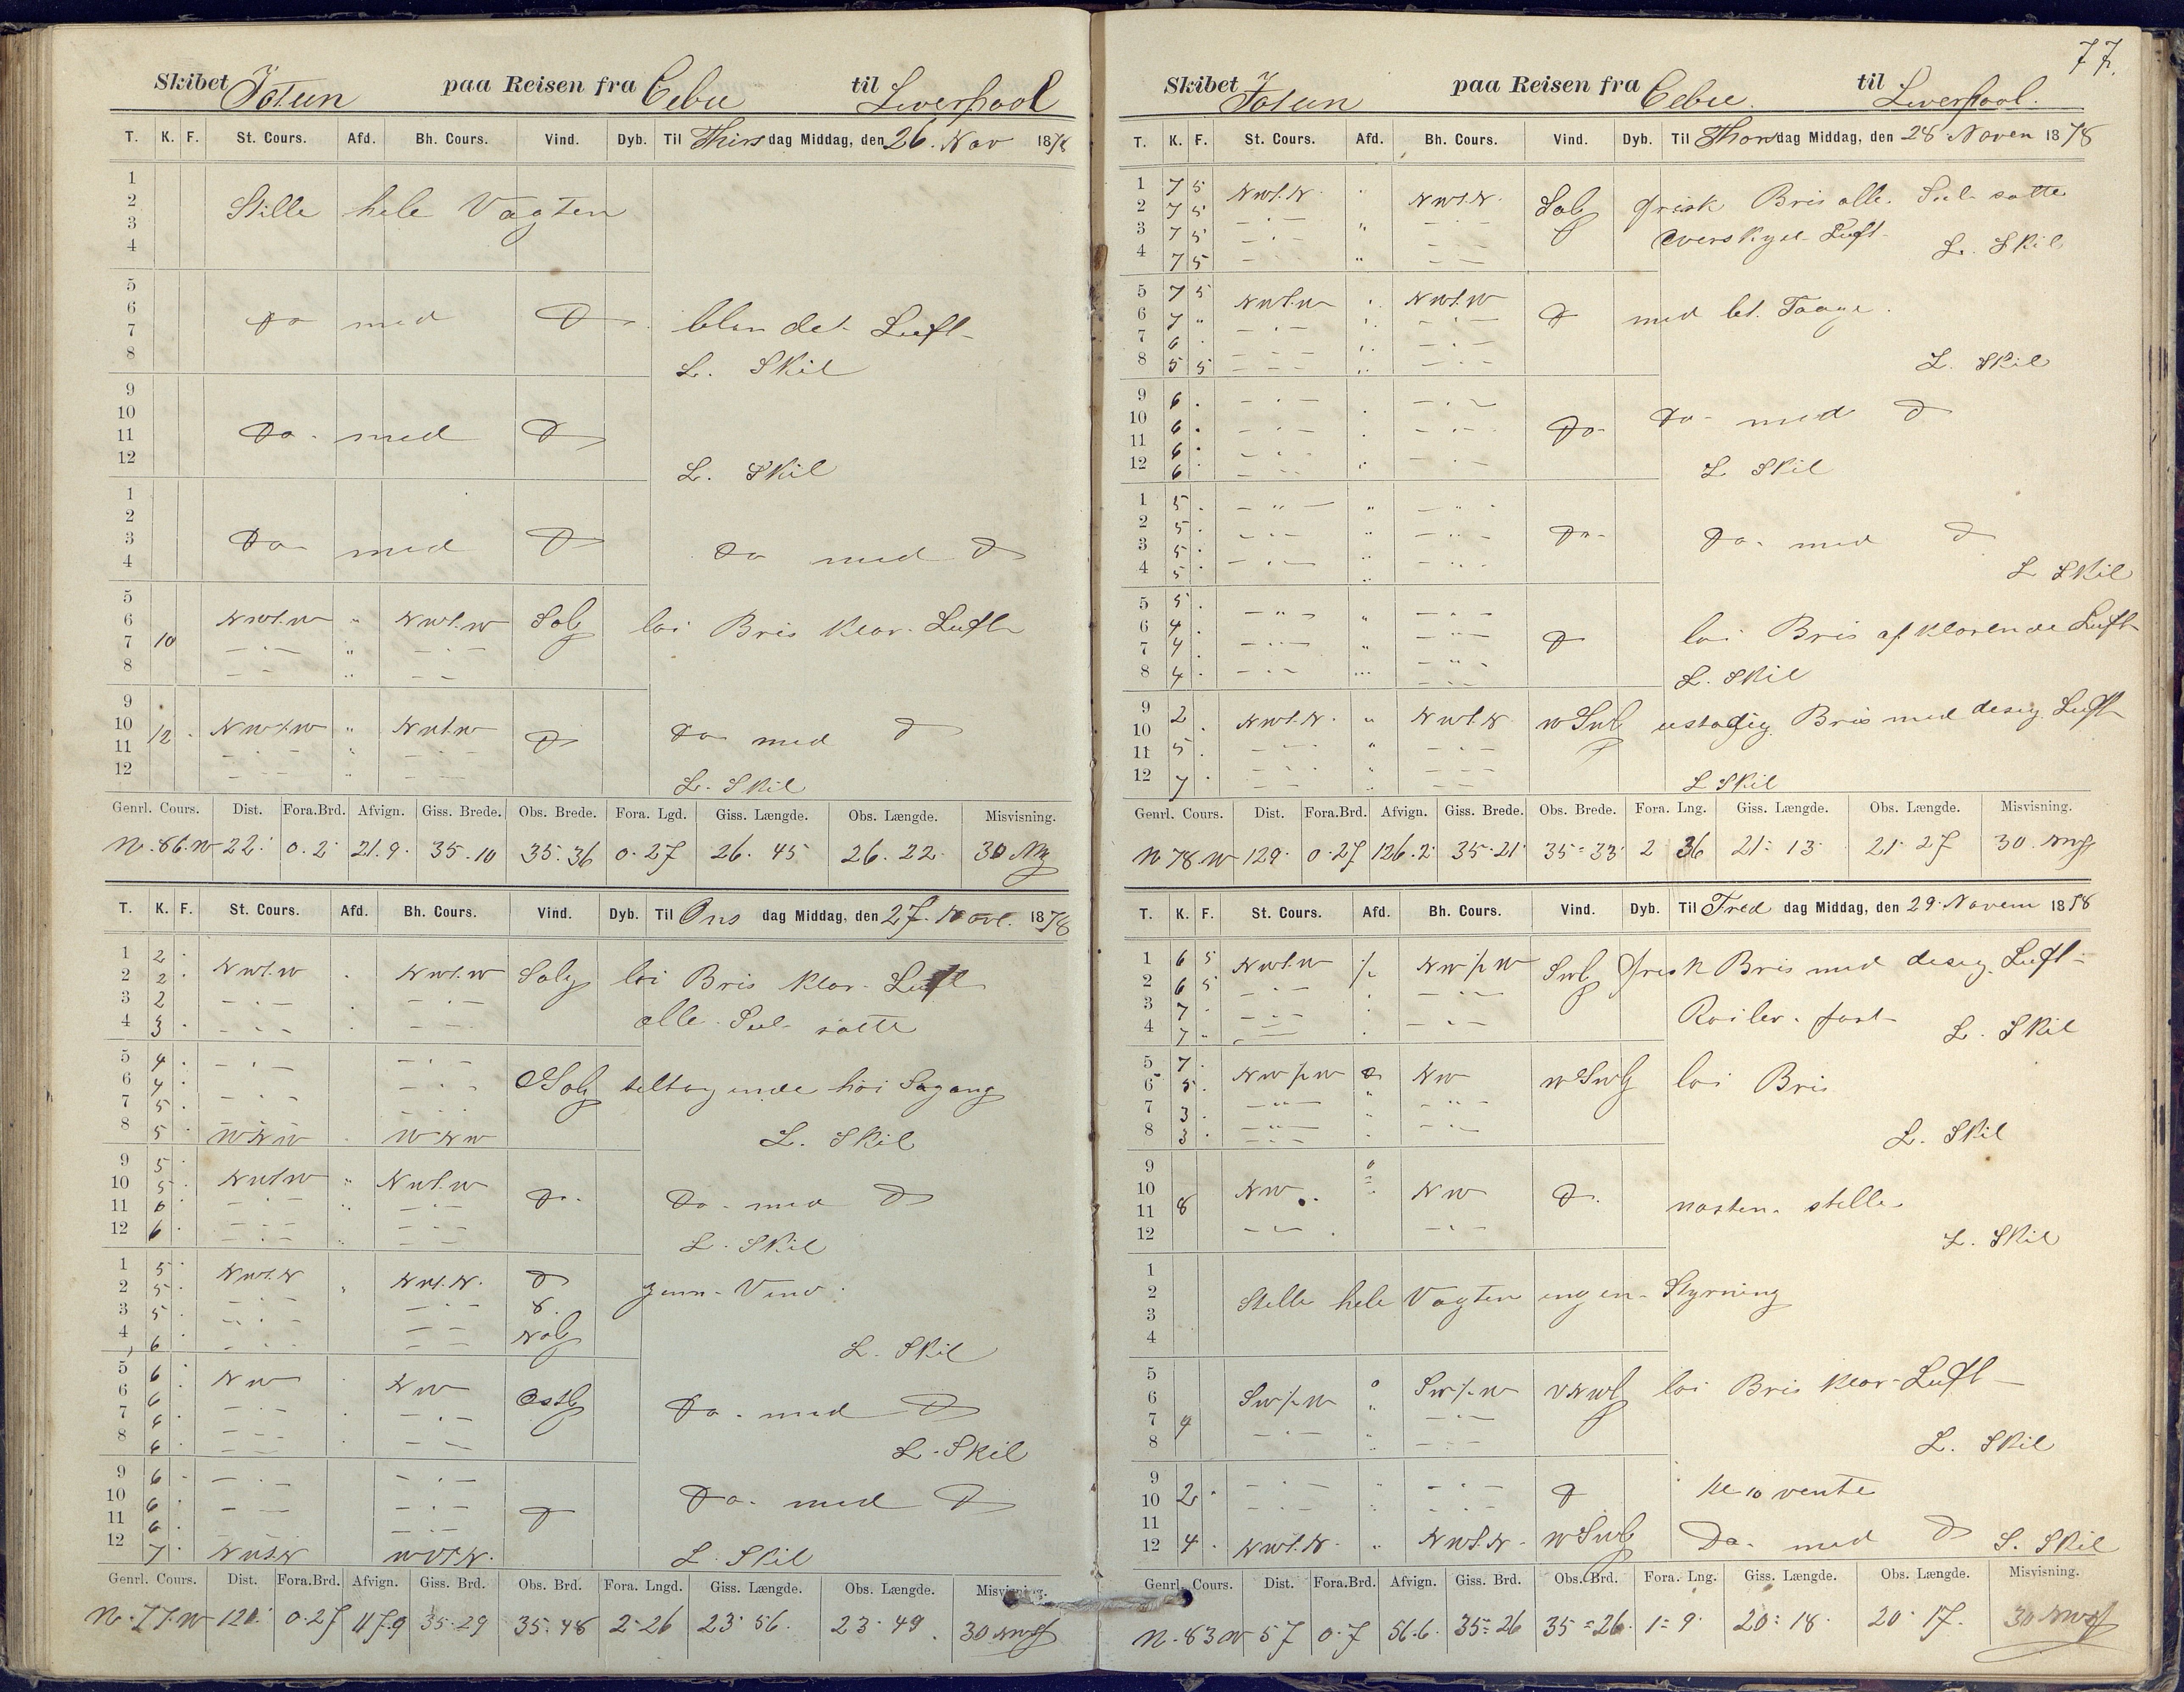 Skibet Jotun paa Reisen fra Cebu til Liverpool
T. K. F. St. Cours. Afd. Bh. Cours. Vind. Dyb. Til Thirs dag Middag, den 26. Nov 1878
1
2 Stille hele Vagten
3
4
5
6 Do med D blandet Luft
7
8 L. Skil
9
10
11 Do. med D
12 L. Skil
1
2
3 Do med D Do med D
4
5
6 NWt.W " NWt.W Solg loi Bris klar Luft
7 10 — . — " — . —
8 — — " — —
9
10 12 NWt.W " NWt.W D Do med D
11 — . — " — . —
12 — — " — — L. Skil
Genrl. Cours. Dist. Fora.Brd. Afvign. Giss. Brede. Obs. Brede. Fora. Lgd. Giss. Længde. Obs. Længde. Misvisning.
N.86.W 22. 0.2 21.9. 35.10 35.36 0.27 26.45 26.22 30
T. K. F. St. Cours. Afd. Bh. Cours. Vind. Dyb. Til Ons dag Middag, den 27. Nov. 1878
1 2 .
2 2 . NWt.W . NWt.W Solg loi Bris klar Luft
3 2 — . — — . —
4 3 . — . — — . — alle Seil satte
5 4 . — . — — . —
6 4 . — . — — . — OSolg tiltagende hoi Sogang
7 5 . — . — — . —
8 5 . WNW . WNW L. Skil
9 5 .
10 5 . NWt.W " NWt.W Do. Do. med D
11 6 — . — — . —
12 6 . — . — — . — L. Skil
1 5 . NWt.N " NWt.N. D jevn Vind.
2 5 . — . — — . —
3 5 . — . — — . —
4 6 . — . — — — L. Skil
5 6 . NW . NW Ostlg
6 6 — . — — . — Do. med D
7 6 . — . — — . —
8 6 — . — — — L. Skil
9 6 — . — — . —
10 6 . — — — . — D Do. med D
11 6 .
12 7 . L. Skil
Genrl. Cours. Dist. Fora.Brd. Afvign. Giss. Brd. Obs. Brd. Fora. Lngd. Giss. Længde. Obs. Længde. Misvisning.
N.77.W 121. 0.27 117.9 35.29 35.48 2.26 23.56. 23.49. 30
77.
Skibet Jotun paa Reisen fra Cebu. til Liverpool.
T. K. F. St. Cours. Afd. Bh. Cours. Vind. Dyb. Til Thors dag Middag, den 28 Novem 1878
1 7 5 NWt.N . NWt.N. Solg frisk Bris alle Seil satte
2 7 5 — . — — . —
3 7 5 — . — " — . — overskyet Luft
4 7 5 — . — " — — L. Skil
5 7 5 NWt.W . NWt.W
6 7 " — . — — . — D med let Taage.
7 6 . — . — — . —
8 5 5 — — — — . — L. Skil
9 6 . — . — — . —
10 6 . — . — . — . — Do Do med D
11 6 . — . —
12 6 . — . — — . — L Skil
1 5 . — " — " — " —
2 5 . — . — " — " — Do Do. med D
3 5 . — . — " — " —
4 5 — . — " — . — L Skil
5 5 .
6 4 . — " — " — . —
7 4 . — . — " — . — D loi Bris afklarende Luft
8 4 . — . — — . — L. Skil
9 2 NWt.N. " NWt.N WSWlg ustadig Bris med desig Luft
10 . — . — — . —
11 5 . — . — " — . —
12 7 . — . — — — L Skil
Genrl. Cours. Dist. Fora.Brd. Afvign. Giss. Brede. Obs. Brede. Fora. Lng. Giss. Længde. Obs. Længde. Misvisning.
N 78 W 129. 0.27 126.2 35.21 35.33 2 36 21.13 21.27 30
T. K. F. St. Cours. Afd. Bh. Cours. Vind. Dyb. Til Fred dag Middag, den 29 Novem 1878
1 6 5 NWt.W NW/.W SWlg frisk Bris med desig Luft
2 6 5 — . — — . —
3 7 . — . — . — . — Roiler fast
4 7 " — — . — . — L. Skil
5 7 .
6 5 . NW/.W NW WSWlg loi Bris
7 3 . — " — — " —
8 3 . — " — — . — L. Skil
9
10 NW. NW D. nasten stille
11 8
12 — . — — . — L. Skil
1
2 Stille hele Vagten ingen Styrning
3
4
5
6 SW/.W SW/.W VNWlg loi Bris klar Luft
7 4 — . —
8 — . — — . — L. Skil
9 — . — — . —
10 2 . — . — — . — D
11
12 4 . NWt.N. " NWt.N. WSWlg Do. med D L. Skil
Genrl. Cours. Dist. Fora.Brd. Afvign. Giss. Brd. Obs. Brd. Fora. Lng. Giss. Længde. Obs. Længde. Misvisning.
N.83W 57 0.7 56.6. 35=26 35=26. 1=9. 20:18. 20.17. 30